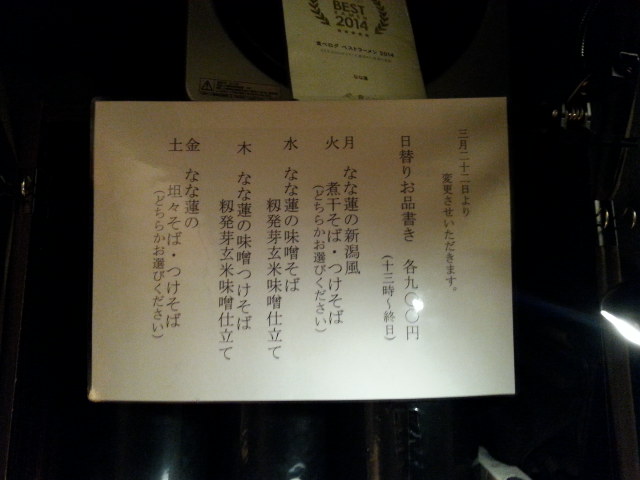 BEST
2014
食べログ ベストラーメン 2014
三月二十二日より
変更させいただきます。
日替りお品書き 各九〇〇円
(十三時~終日)
月 なな蓮の新潟風
火 煮干そば・つけそば
(どちらかお選びください)
水 なな蓮の味噌そば
籾発芽玄米味噌仕立て
木 なな蓮の味噌つけそば
籾発芽玄米味噌仕立て
金 なな蓮の
土 坦々そば・つけそば
(どちらかお選びください)